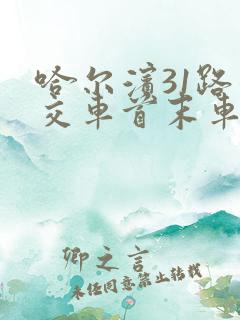 哈尔滨31路
交车首末车
卿之言
未经同意禁止转载